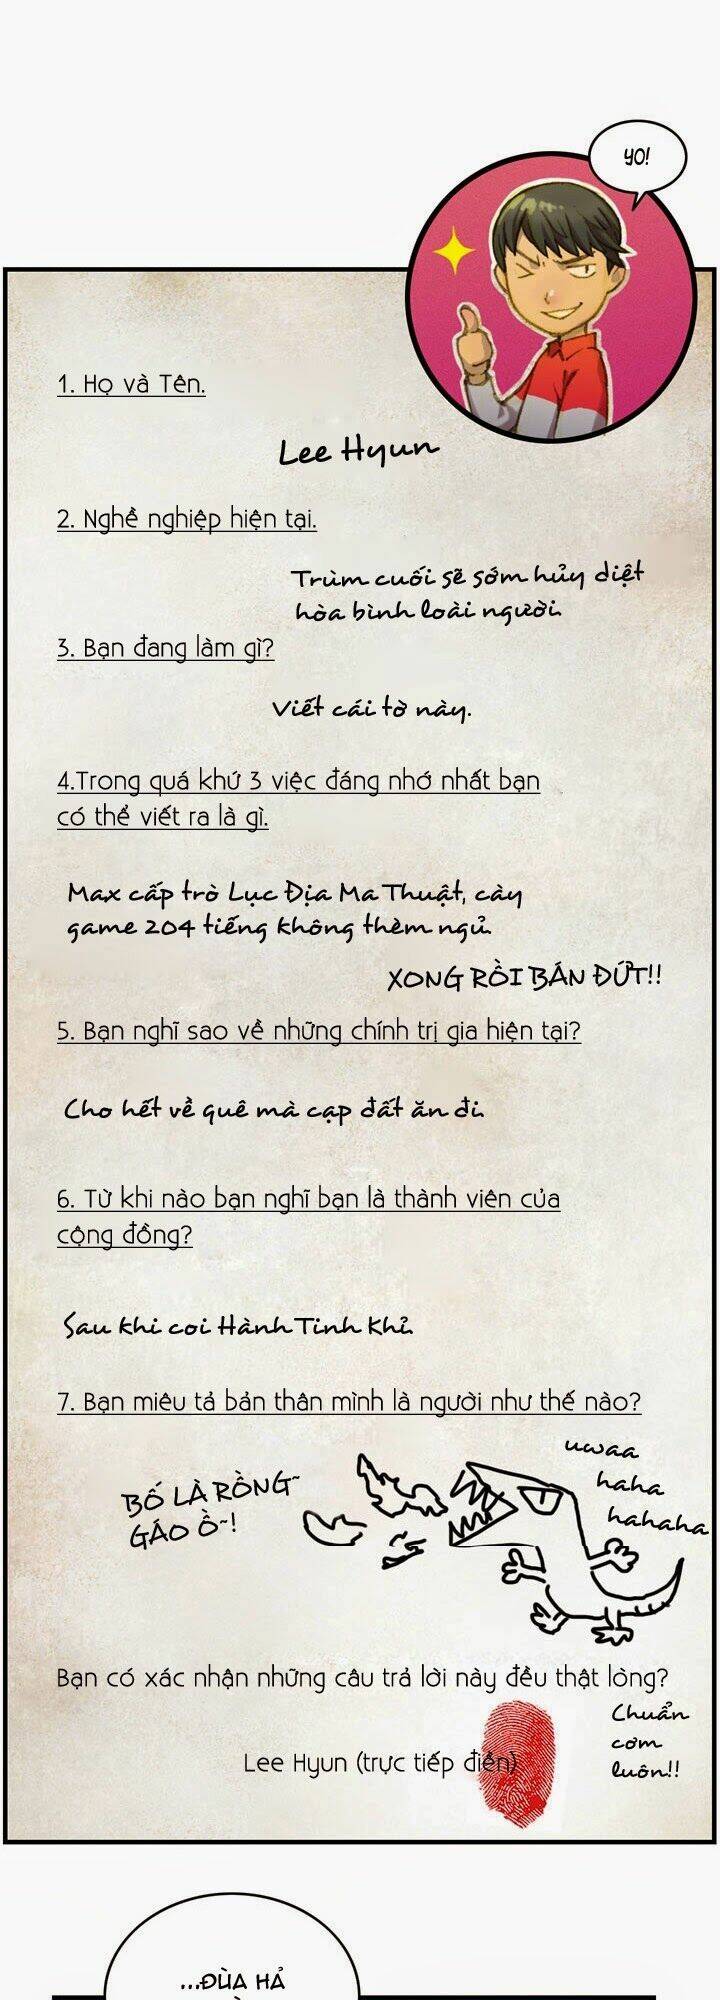 YO!
1. Họ và Tên.
Lee Hyun
2. Nghề nghiệp hiện tại.
Trùm cuối sẽ sớm hủy diệt
hòa bình loài người.
3. Bạn đang làm gì?
Viết cái tờ này.
4.Trong quá khứ 3 việc đáng nhớ nhất bạn
có thể viết ra là gì.
Max cấp trò Lục Địa Ma Thuật, cày
game 204 tiếng không thèm ngủ.
XONG RỒI BÁN ĐỨT!!
5. Bạn nghĩ sao về những chính trị gia hiện tại?
Cho hết về quê mà cạp đất ăn đi.
6. Từ khi nào bạn nghĩ bạn là thành viên của
cộng đồng?
Sau khi coi Hành Tinh Khỉ.
7. Bạn miêu tả bản thân mình là người như thế nào?
uwaa
haha
hahaha
BỐ LÀ RỒNG~
GÁO Ồ~!
Bạn có xác nhận những câu trả lời này đều thật lòng?
Chuẩn
cơm
luôn!!
Lee Hyun (trực tiếp điền)
...ĐÙA HẢ